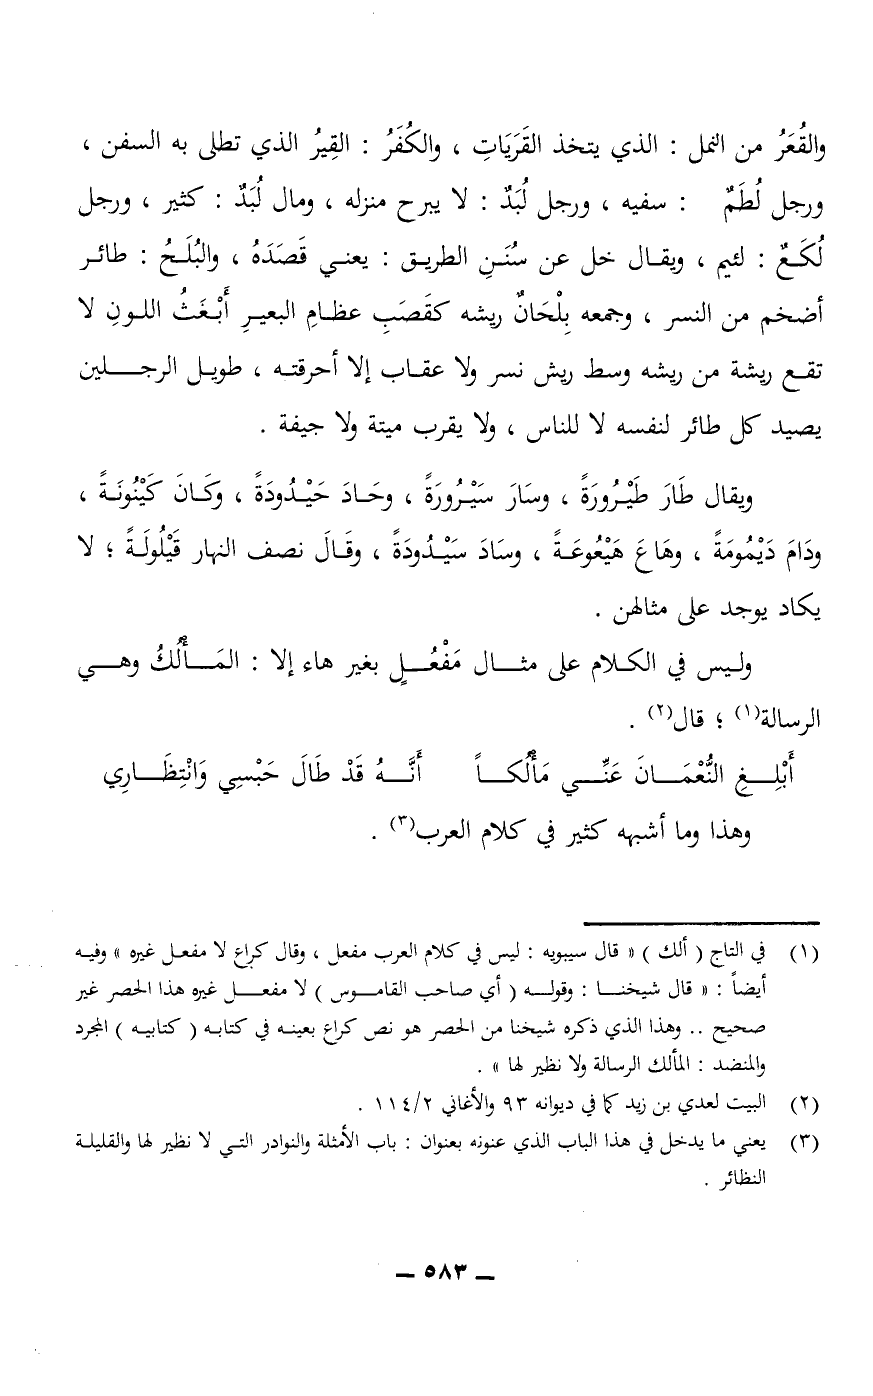 والقُعَرُ من النمل : الذي يتخذ القَرَيَاتِ ، والكُفَرُ : القِيرُ الذي تطلى به السفن ،
ورجل لُطَمٌ : سفيه ، ورجل لُبَدٌ : لا يبرح منزله ، ومال لُبَدٌ : كثير ، ورجل
لُكَعٌ : لئيم ، ويقال خل عن سُنَنِ الطريق : يعني قَصَدَهُ ، والبُلَحُ : طائر
أضخم من النسر ، وجمعه بِلْحَانٌ ريشه كقَصَبِ عظامِ البعيرِ أَبْغَثُ اللونِ لا
تقع ريشة من ريشه وسط ريش نسر ولا عقاب إلا أحرقته ، طويل الرجلين
يصيد كل طائر لنفسه لا للناس ، ولا يقرب ميتة ولا جيفة .
ويقال طَارَ طَيْرُورَةً ، وسَارَ سَيْرُورَةً ، وحَادَ حَيْدُودَةً ، وكَانَ كَيْنُونَةً ،
ودَامَ دَيْمُومَةً ، وهَاعَ هَيْعُوعَةً ، وسَادَ سَيْدُودَةً ، وقَالَ نصف النهار قَيْلُولَةً ؛ لا
يكاد يوجد على مثالهن .
وليس في الكلام على مثال مَفْعُلٍ بغير هاء إلا : المَأْلُكُ وهي
الرسالة(١) ؛ قال(٢) .
أَبْلِغِ النُّعْمَانَ عَنِّي مَأْلُكاً أَنَّهُ قَدْ طَالَ حَبْسِي وَانْتِظَارِي
وهذا وما أشبهه كثير في كلام العرب(٣) .
(١) في التاج ( ألك ) « قال سيبويه : ليس في كلام العرب مفعل ، وقال كراع لا مفعل غيره » وفيه
أيضاً : « قال شيخنا : وقوله ( أي صاحب القاموس ) لا مفعل غيره هذا الحصر غير
صحيح .. وهذا الذي ذكره شيخنا من الحصر هو نص كراع بعينه في كتابه ( كتابيه ) المجرد
والمنضد : المألك الرسالة ولا نظير لها » .
(٢) البيت لعدي بن زيد كما في ديوانه ٩٣ والأغاني ١١٤/٢ .
(٣) يعني ما يدخل في هذا الباب الذي عنونه بعنوان : باب الأمثلة والنوادر التي لا نظير لها والقليلة
النظائر .
ــ ٥٨٣ ــ